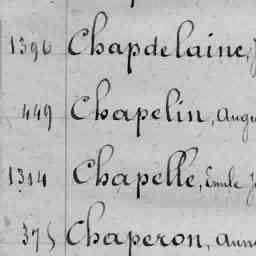 1396 Chapdelaine, J
449 Chapelin, Augu
1314 Chapelle, Emile J
375 Chaperon, Anna